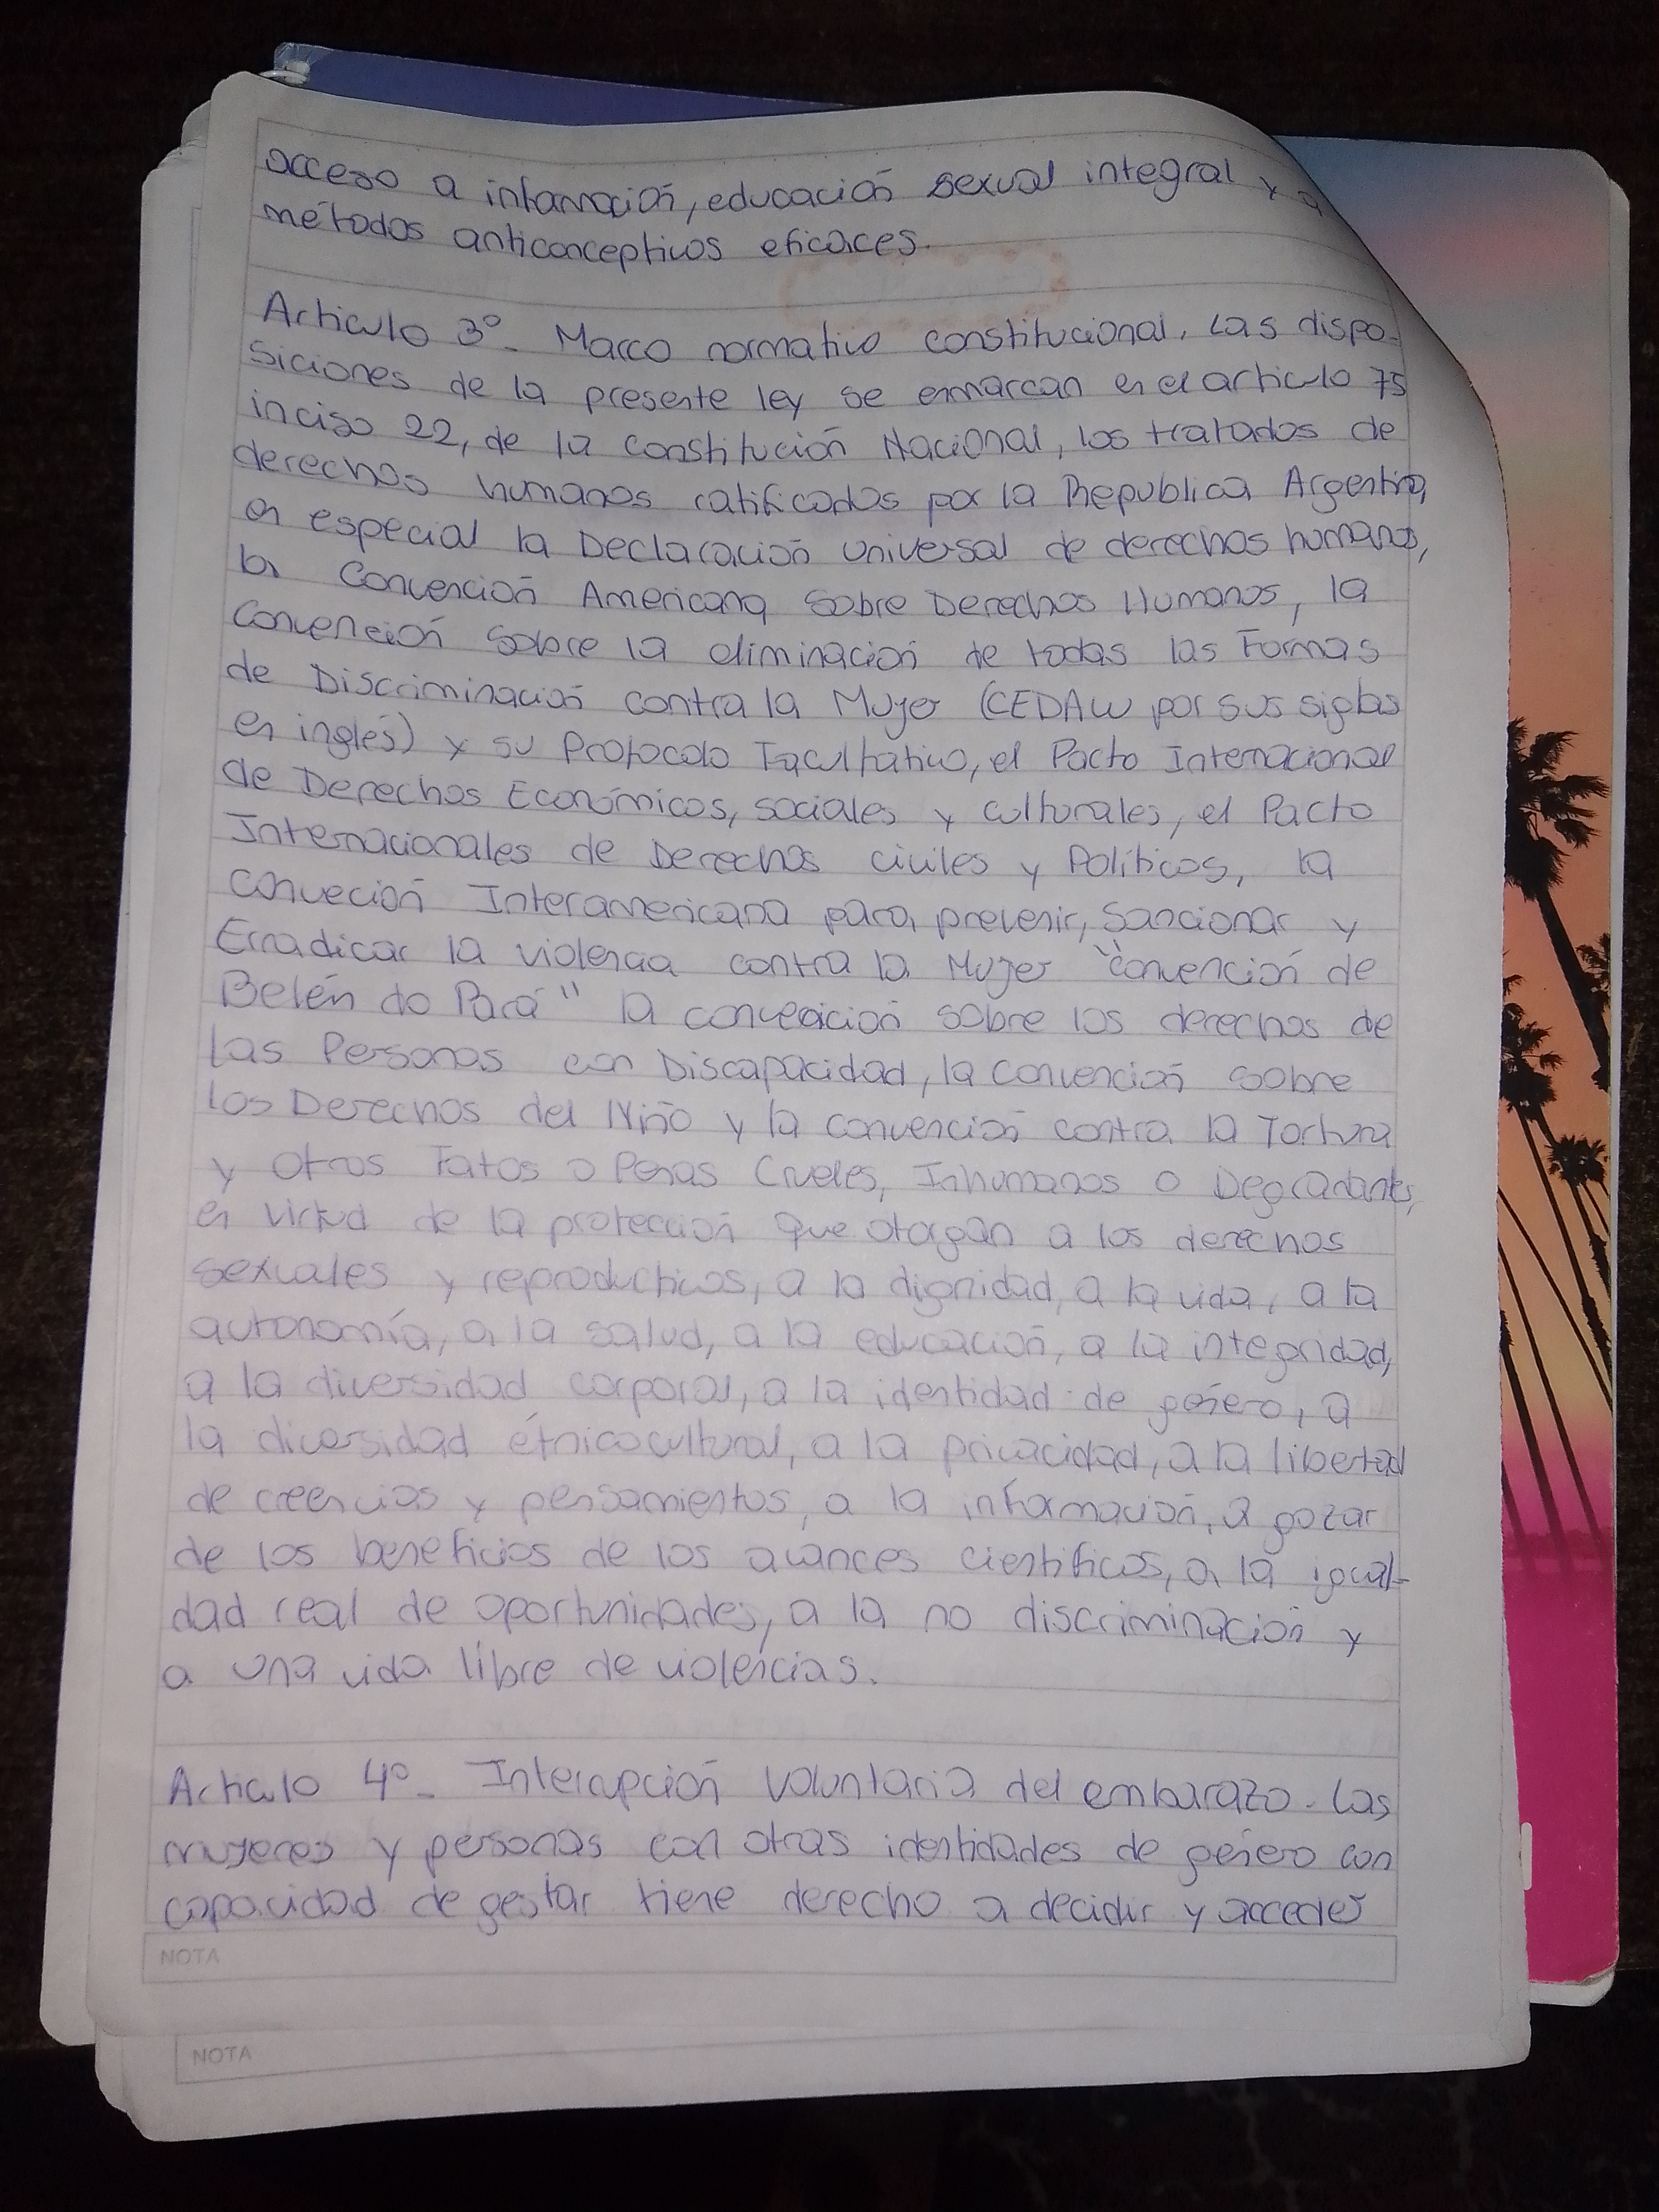 acceso a información, educación sexual integral y a
métodos anticonceptivos eficaces.
Articulo 3º_ Marco normativo constitucional. Las dispo-
siciones de la presente ley se enmarcan en el articulo 75
inciso 22, de la Constitución Nacional, los tratados de
derechos humanos ratificados por la Republica Argentina,
en especial la Declaración universal de derechos humanos,
la Convención Americana sobre Derechos Humanos, la
Convención sobre la eliminación de todas las Formas
de Discriminación contra la Mujer (CEDAW por sus siglas
en inglés) y su Protocolo Facultativo, el Pacto Internacional
de Derechos Económicos, sociales y culturales, el Pacto
Internacionales de Derechos civiles y Políticos, la
conveción Interamericana para prevenir, Sancionar y
Erradicar la violencia contra la Mujer "convención de
Belén do Pará" la convención sobre los derechos de
las Personas con Discapacidad, la convención sobre
los Derechos del Niño y la convención contra la Tortura
y Otros Tatos o Penas Crueles, Inhumanos o Degradantes,
en virtud de la protección que otorgan a los derechos
sexuales y reproductivos, a la dignidad, a la vida, a la
autonomía, a la salud, a la educación, a la integridad,
a la diversidad corporal, a la identidad de género, a
la diversidad étnicocultural, a la privacidad, a la libertad
de creencias y pensamientos, a la información, a gozar
de los beneficios de los avances científicos, a la igual-
dad real de oportunidades, a la no discriminación y
a una vida libre de violencias.
Articulo 4º_ Interrupción Voluntaria del embarazo. Las
mujeres y personas con otras identidades de género con
capacidad de gestar tiene derecho a decidir y acceder
NOTA
NOTA